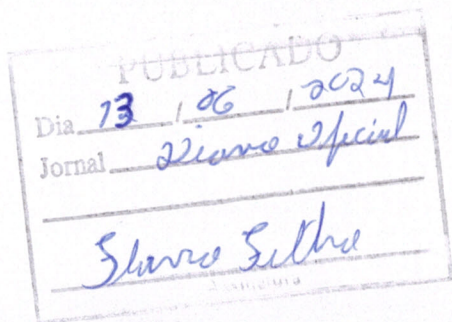 PUBLICADO
Dia 13 / 06 / 2024
Jornal Diario Oficial
Assinatura